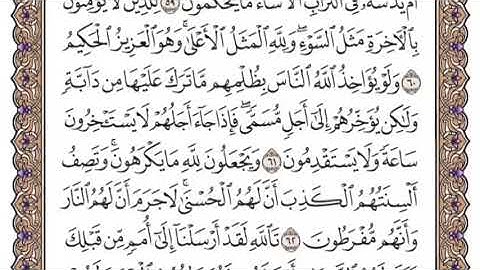 أَمْ يَدُسُّهُۥ فِى ٱلتُّرَابِ أَلَا سَآءَ مَا يَحْكُمُونَ ٥٩ لِلَّذِينَ لَا يُؤْمِنُونَ
بِٱلْءَاخِرَةِ مَثَلُ ٱلسَّوْءِ ۖ وَلِلَّهِ ٱلْمَثَلُ ٱلْأَعْلَىٰ ۚ وَهُوَ ٱلْعَزِيزُ ٱلْحَكِيمُ
٦٠ وَلَوْ يُؤَاخِذُ ٱللَّهُ ٱلنَّاسَ بِظُلْمِهِم مَّا تَرَكَ عَلَيْهَا مِن دَآبَّةٍ
وَلَٰكِن يُؤَخِّرُهُمْ إِلَىٰٓ أَجَلٍ مُّسَمًّى ۖ فَإِذَا جَآءَ أَجَلُهُمْ لَا يَسْتَـْٔخِرُونَ
سَاعَةً وَلَا يَسْتَقْدِمُونَ ٦١ وَيَجْعَلُونَ لِلَّهِ مَا يَكْرَهُونَ ۚ وَتَصِفُ
أَلْسِنَتُهُمُ ٱلْكَذِبَ أَنَّ لَهُمُ ٱلْحُسْنَىٰ ۚ لَا جَرَمَ أَنَّ لَهُمُ ٱلنَّارَ
وَأَنَّهُم مُّفْرَطُونَ ٦٢ تَٱللَّهِ لَقَدْ أَرْسَلْنَآ إِلَىٰٓ أُمَمٍ مِّن قَبْلِكَ